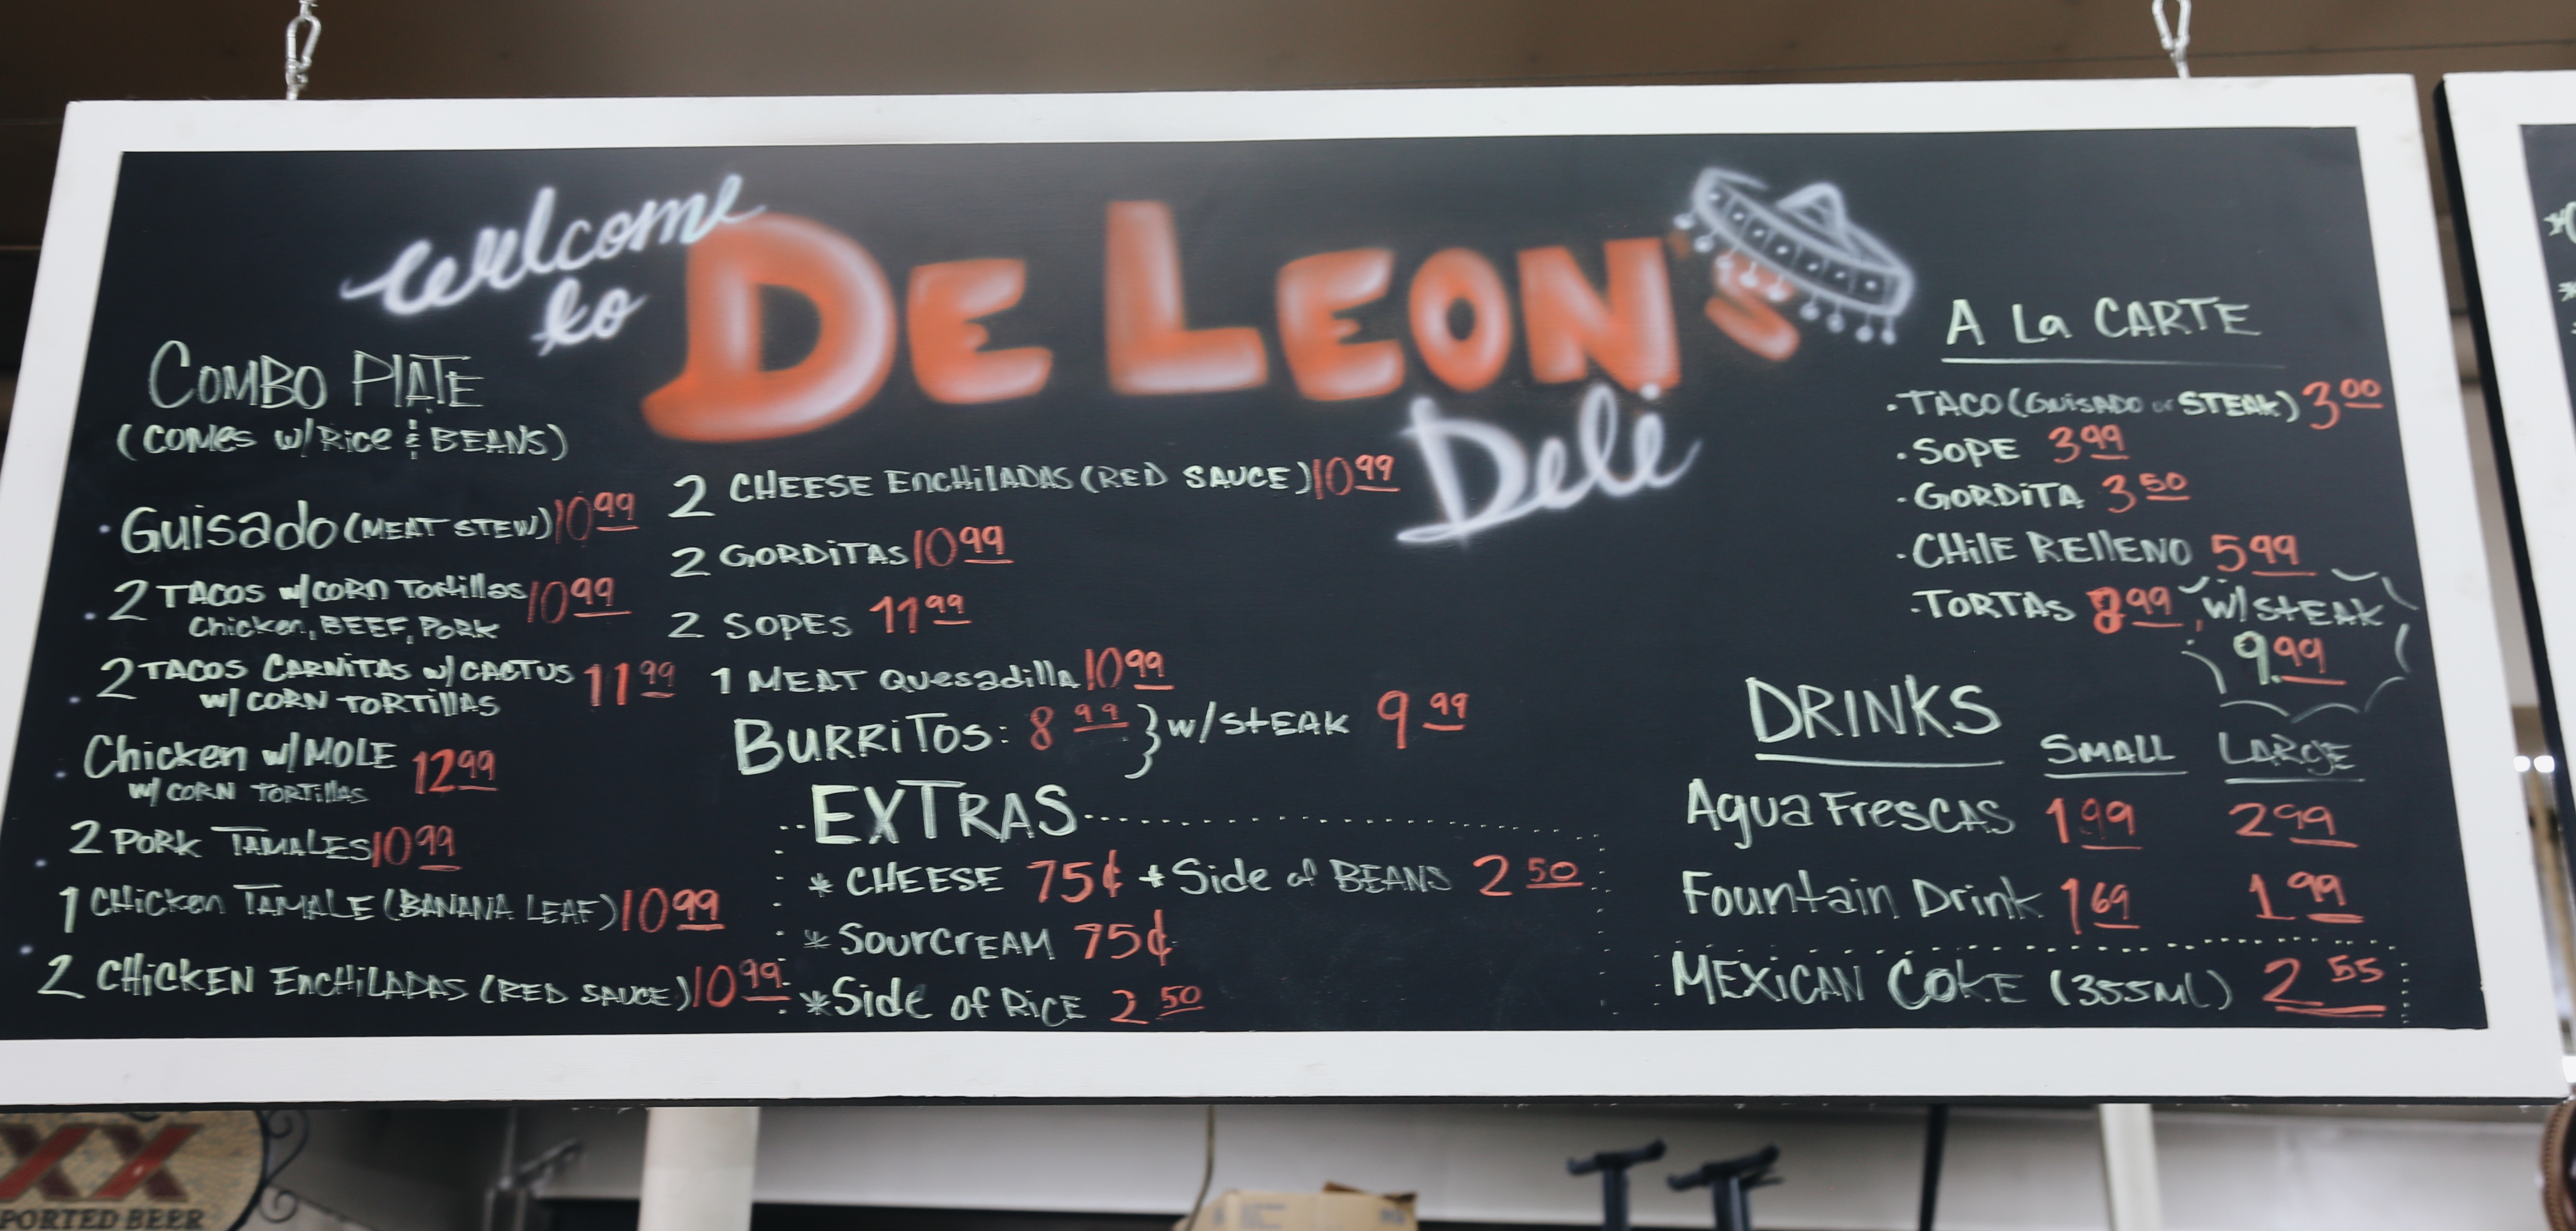 welcome
to
DE LEON'S
Deli
COMBO PLATE
(COMES w/ Rice & BEANS)
· Guisado (MEAT STEW) 10 99
· 2 TACOS w/ CORN Tortillas 10 99
Chicken, BEEF, PORK
· 2 TACOS CARNITAS w/ CACTUS 11 99
w/ CORN TORTillAS
· Chicken w/ MOLE 12 99
w/ CORN TORTillAs
· 2 PORK TAMALES 10 99
· 1 CHicken TAMALE (BANANA LEAF) 10 99
2 CHiCKEN EncHiLADAS (RED SAUCE) 10 99
2 CHEESE EncHilADAS (RED SAUCE) 10 99
2 GORDiTAS 10 99
2 SOPES 11 99
1 MEAT Quesadilla 10 99
BURRiTOS: 8 99 } w/ STEAK 9 99
EXTRAS
* CHEESE 75¢ * Side of BEANS 2 50
* SOURCrEAM 75¢
* Side of RiCE 2 50
A La CARTE
· TACO (GuiSADO or STEAK) 3 00
· SOPE 3 99
· GORDiTA 3 50
· CHilE REllENO 5 99
· TORTAs 8 99, w/ STEAK
9.99
DRINKS
SMALL LARGE
Agua FresCAS 1 99 2 99
Fountain Drink 1 69 1 99
MEXiCAN COKE (355ML) 2 55
XX
PORTED BEER